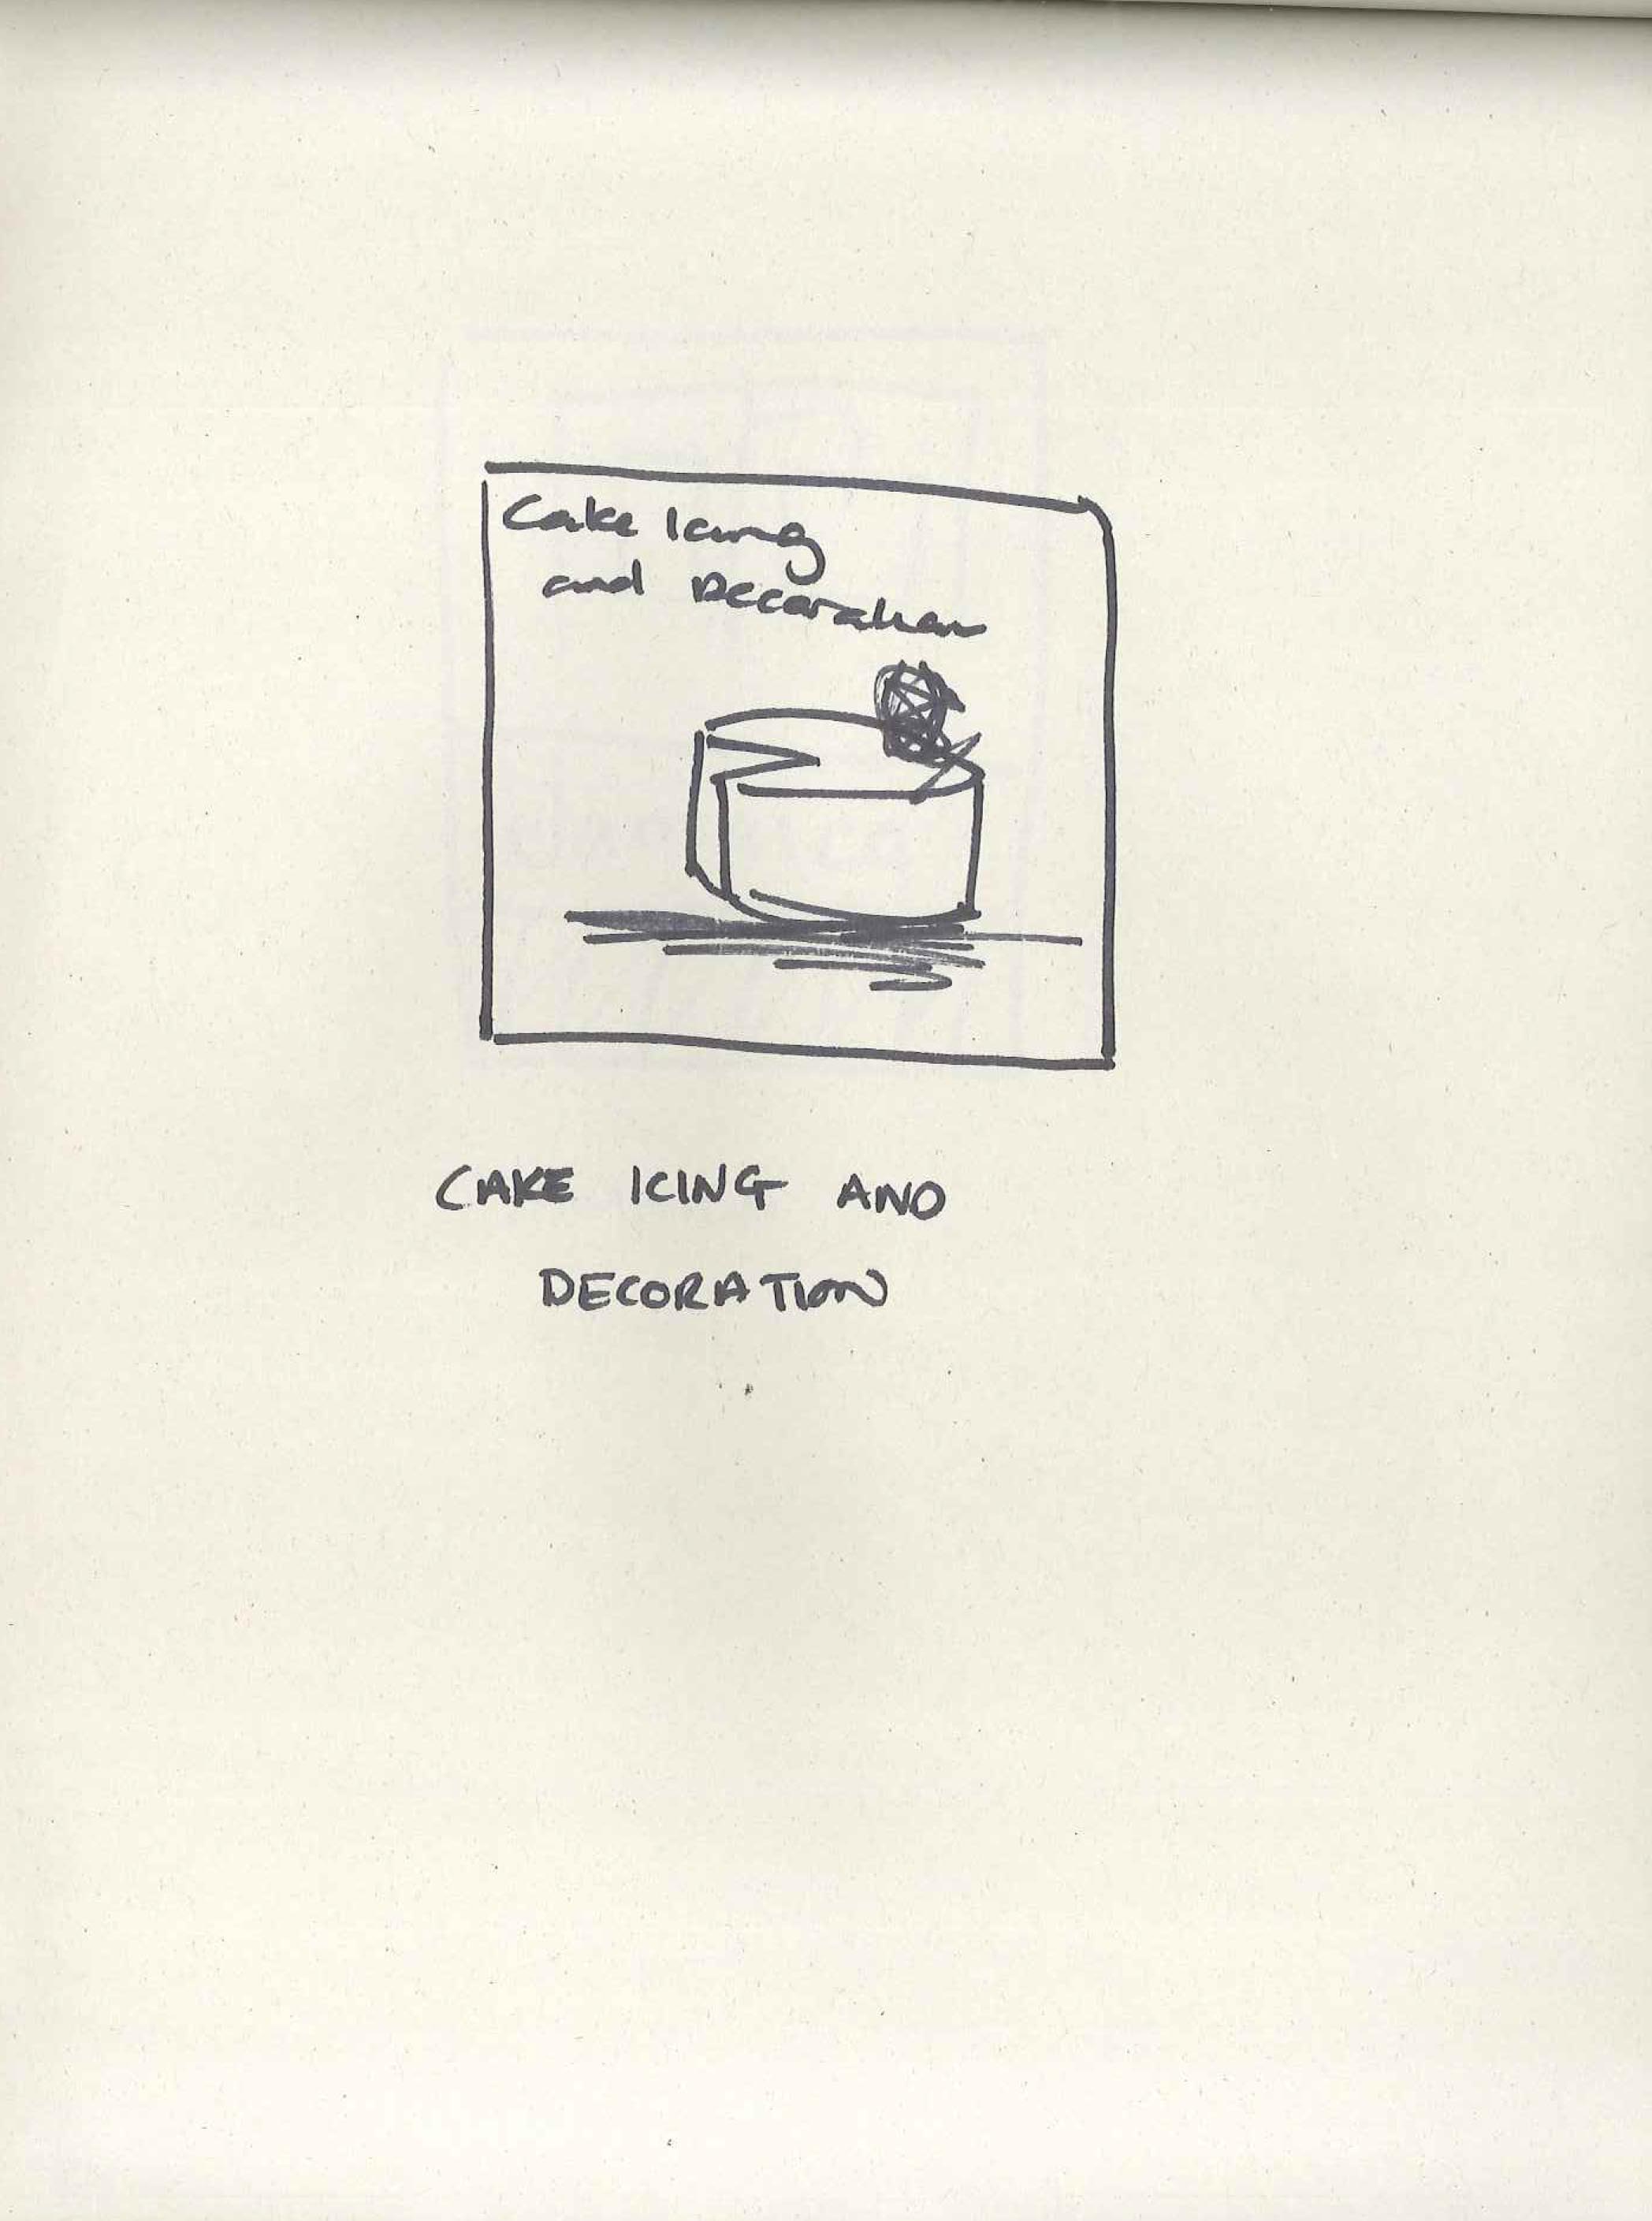 Cake Icing
and Decoration
CAKE ICING AND
DECORATION